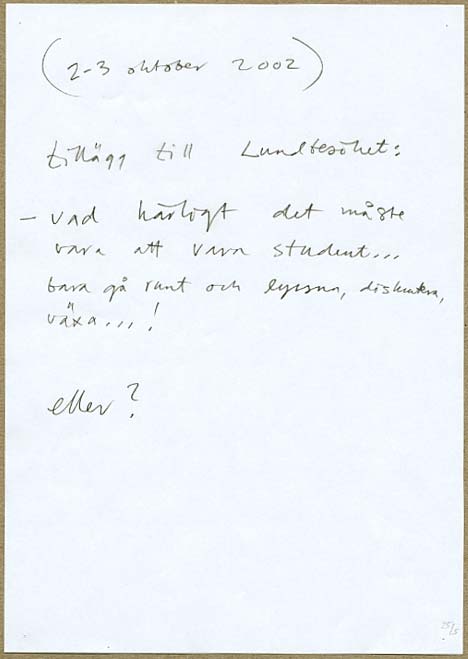 (2-3 oktober 2002)
tillägg till Lundbesöket:
- vad härligt det måste
vara att vara student...
bara gå runt och lyssna, diskutera,
växa...!
eller?
25/5